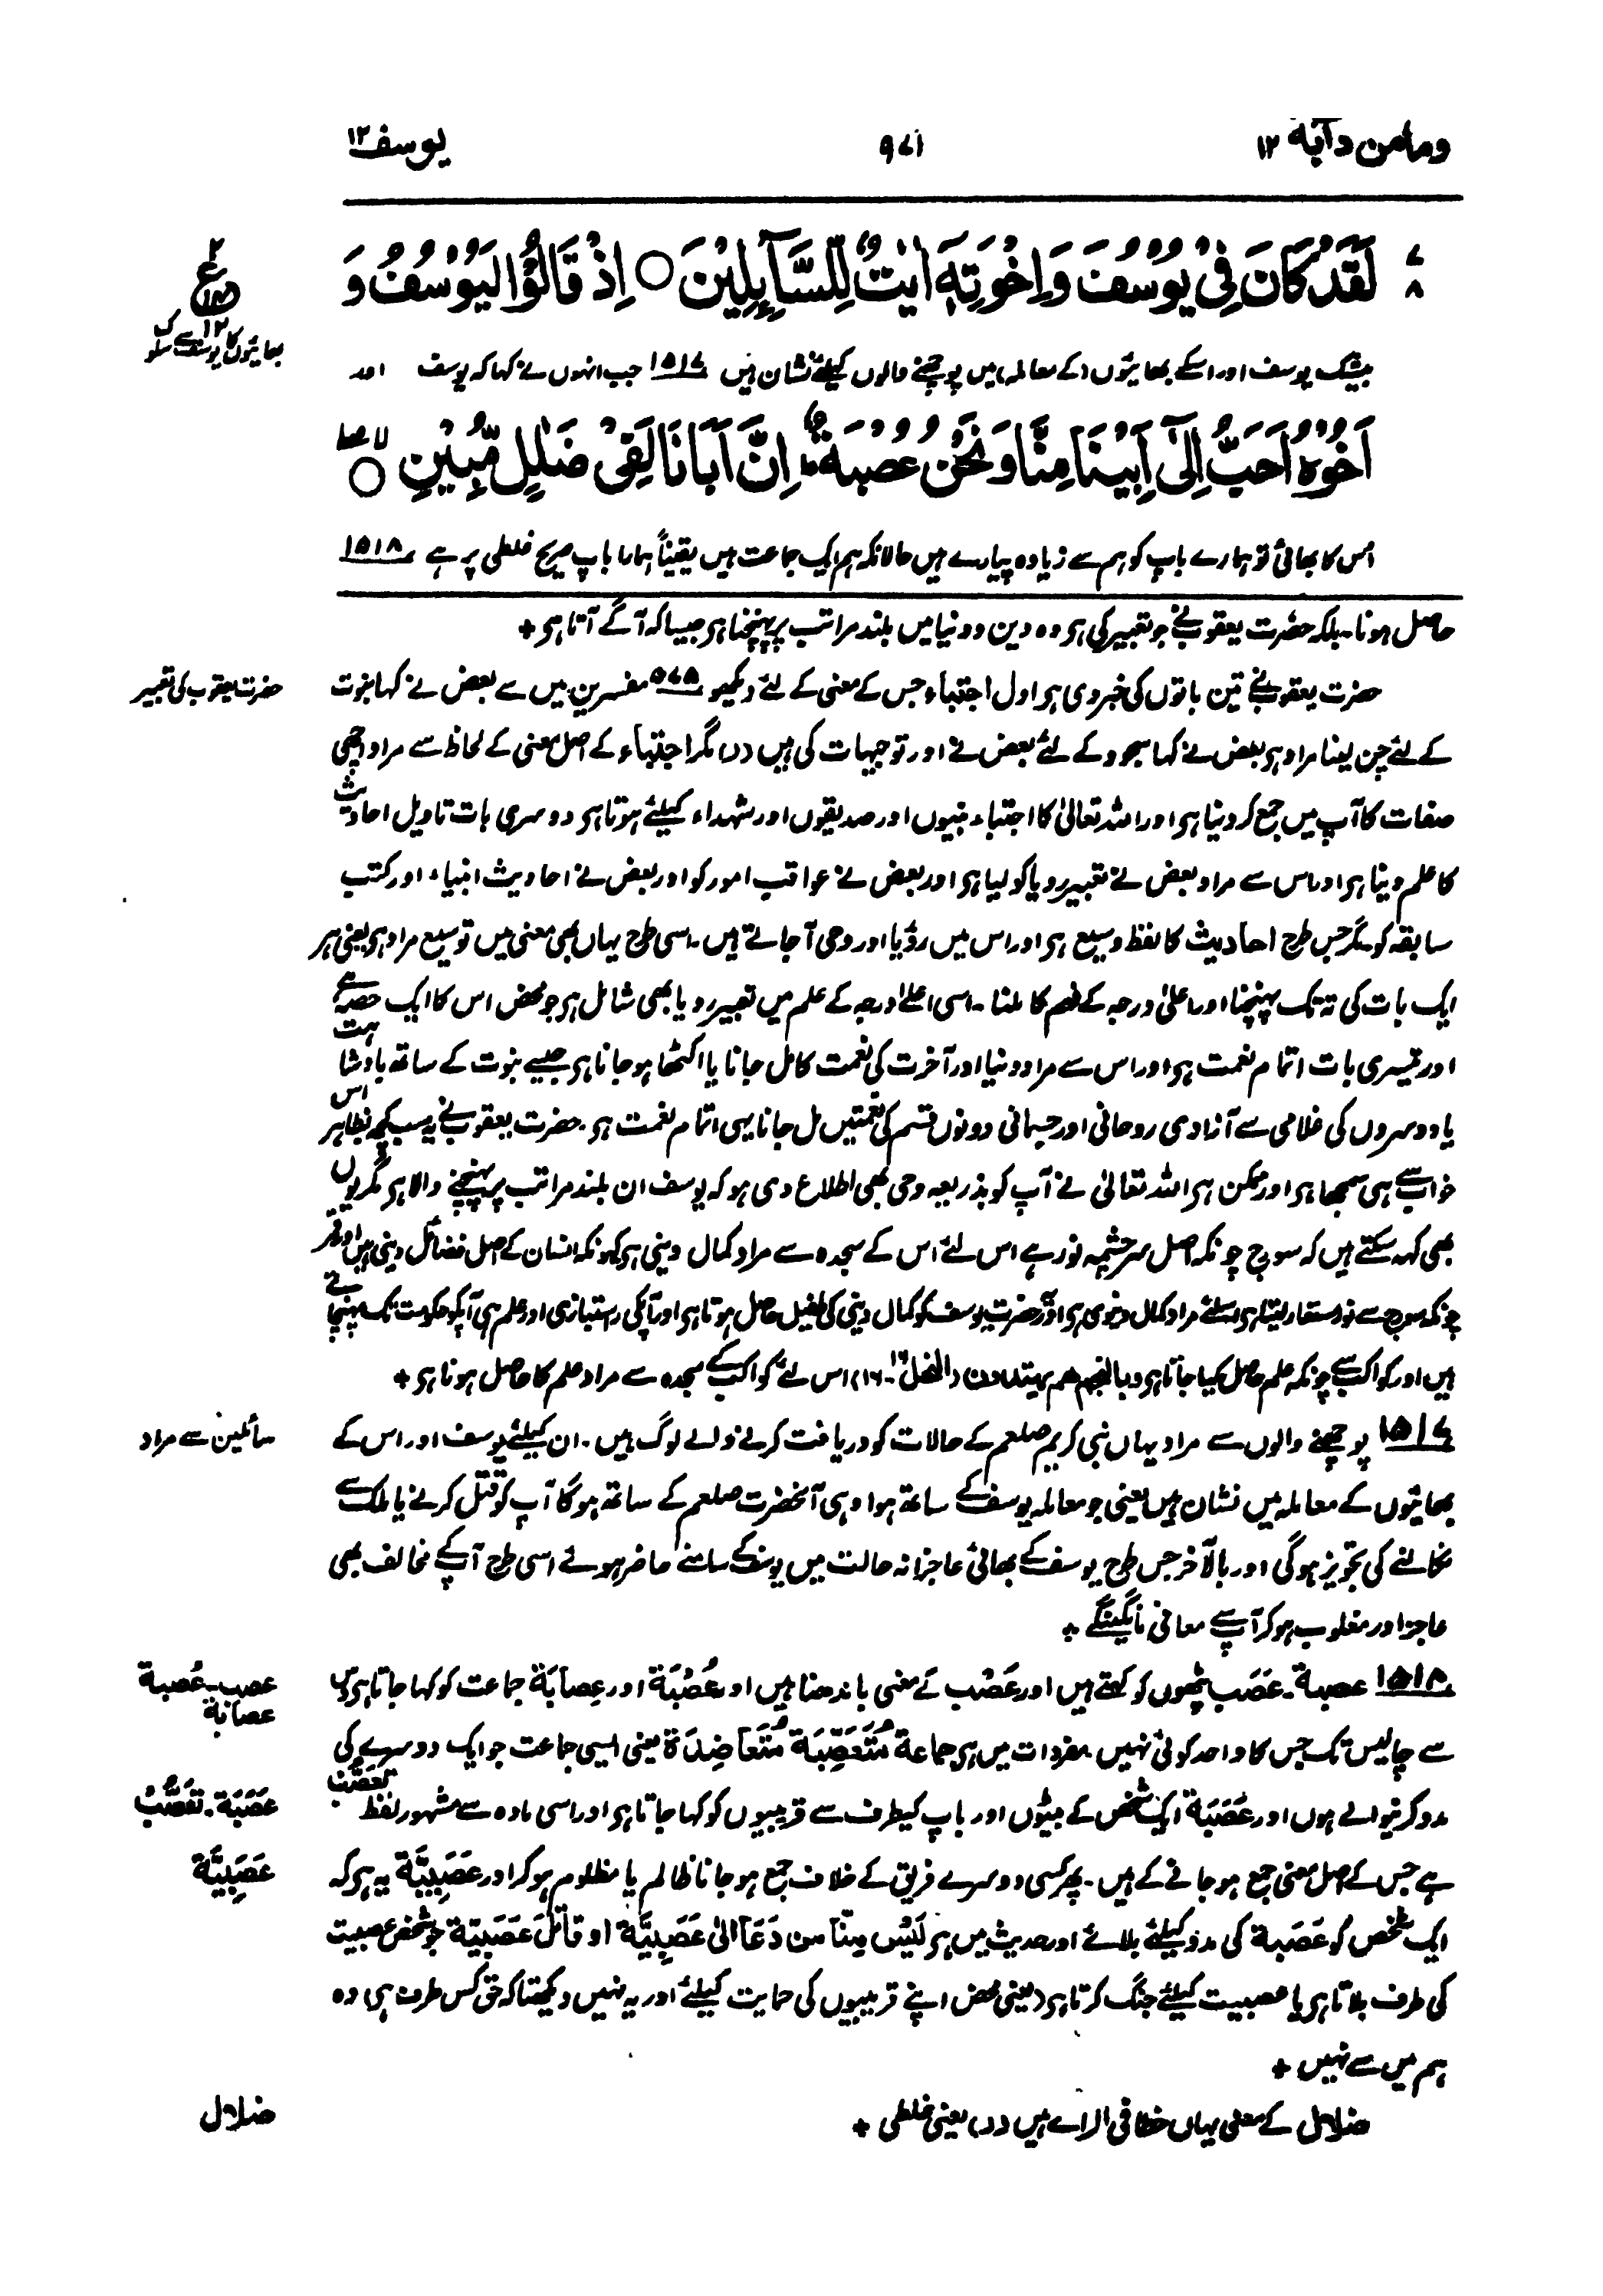 ومامن دآبة ۱۲
۹۷۱
یوسف ۱۲
۷
۸
لَقَدْ كَانَ فِيْ يُوْسُفَ وَاِخْوَتِهٖٓ اٰيٰتٌ لِّلسَّآئِلِيْنَ ○ اِذْ قَالُوْا لَيُوْسُفُ وَ
۲
ع
۱۲
بھائیوں کا یوسف سے سلوک
بیشک یوسف اور اسکے بھائیوں (کے معاملہ) میں پوچھنے والوں کیلئے نشان ہیں ۱۵۱۷ جب انہوں نے کہا کہ یوسف اور
اَخُوْهُ اَحَبُّ اِلٰٓى اَبِيْنَا مِنَّا وَنَحْنُ عُصْبَةٌ ؕ اِنَّ اَبَانَا لَفِيْ ضَلٰلٍ مُّبِيْنٍ ○
اس کا بھائی تو ہمارے باپ کو ہم سے زیادہ پیارے ہیں حالانکہ ہم ایک جماعت ہیں یقیناً ہمارا باپ صریح غلطی پر ہے ۱۵۱۸
حاصل ہونا۔ بلکہ حضرت یعقوبؑ نے جو تعبیر کی ہر وہ دین و دنیا میں بلند مراتب پر پہنچنا ہر جیسا کہ آگے آتا ہر +
حضرت یعقوب کی تعبیر
حضرت یعقوبؑ نے تین باتوں کی خبر دی ہر اول اجتباء جس کے معنی کے لئے دیکھو ۵۷۵ مفسرین میں سے بعض نے کہا نبوت
کے لئے چن لینا مراد ہر بعض نے کہا سجود کے لئے بعض نے اور توجیہات کی ہیں (ر) مگر اجتباء کے اصل معنی کے لحاظ سے مراد اچھی
صفات کا آپ میں جمع کر دینا ہر اور اللہ تعالیٰ کا اجتباء نبیوں اور صدیقوں اور شہداء کیلئے ہوتا ہر دوسری بات تاویل احادیث
کا علم دینا ہر اور اس سے مراد بعض نے تعبیر رویا کو لیا ہر اور بعض نے عواقب امور کو اور بعض نے احادیث انبیاء اور کتب
سابقہ کو۔ مگر جس طرح احادیث کا لفظ وسیع ہر اور اس میں رؤیا اور وحی آ جاتے ہیں۔ اسی طرح یہاں بھی معنی میں توسیع مراد ہر یعنی ہر
ایک بات کی تہ تک پہنچنا اور اعلیٰ درجہ کے فہم کا ملنا۔ اسی اعلیٰ درجہ کے علم میں تعبیر رویا بھی شامل ہر جو محض اس کا ایک حصہ ہے
اور تیسری بات اتمام نعمت ہر اور اس سے مراد دنیا اور آخرت کی نعمت کا مل جانا یا اکٹھا ہو جانا ہر جیسے نبوت کے ساتھ بادشاہت
یا دوسروں کی غلامی سے آزادی روحانی اور جسمانی دونوں قسم کی نعمتیں مل جانا یہی اتمام نعمت ہر۔ حضرت یعقوبؑ نے یہ سب کچھ بظاہر اس
خواب سے ہی سمجھا ہر اور ممکن ہر اللہ تعالیٰ نے آپ کو بذریعہ وحی بھی اطلاع دی ہو کہ یوسف ان بلند مراتب پر پہنچنے والا ہر مگر یوں
بھی کہہ سکتے ہیں کہ سورج چونکہ اصل سرچشمہ نور ہے اس لئے اس کے سجدہ سے مراد کمال دینی ہر کیونکہ انسان کے اصل فضائل دینی ہیں اور قمر
چونکہ سورج سے نور مستعار لیتا ہر اسلئے مراد کمال دنیوی ہر اور حضرت یوسف کو کمال دینی کی طفیل حاصل ہوتا ہر اور آپکی راستبازی اور علم ہی آپکو حکومت تک پہنچاتے
ہیں اور کواکب سے چونکہ علم حاصل کیا جاتا ہر وبالنجم هم یهتدون (النحل ۱۶-۱۶) اس لئے کواکب کے سجدہ سے مراد علم کا حاصل ہونا ہر +
سائلین سے مراد
۱۵۱۷ پوچھنے والوں سے مراد یہاں نبی کریم صلعم کے حالات کو دریافت کرنے والے لوگ ہیں۔ ان کیلئے یوسف اور اس کے
بھائیوں کے معاملہ میں نشان ہیں یعنی جو معاملہ یوسف کے ساتھ ہوا وہی آنحضرت صلعم کے ساتھ ہوگا آپ کو قتل کرنے یا ملک سے
نکالنے کی تجویز ہوگی اور بالآخر جس طرح یوسف کے بھائی عاجزانہ حالت میں یوسف کے سامنے حاضر ہوئے اسی طرح آپ کے مخالف بھی
عاجز اور مغلوب ہو کر آپ سے معافی مانگینگے +
عصب۔ عُصبة
عصابة
۱۵۱۸ عصبة۔ عَصَب پٹھوں کو کہتے ہیں اور عَصْب کے معنی باندھنا ہیں اور عُصْبَة اور عِصَابَة جماعت کو کہا جاتا ہر دس
سے چالیس تک جس کا واحد کوئی نہیں۔ مفردات میں ہر جماعة مُتَعَصِّبَة مُتَعَاضِدَة یعنی ایسی جماعت جو ایک دوسرے کی
عَصَبَة۔ تَعَصُّب
مدد کرنیوالے ہوں اور عَصَبَة ایک شخص کے بیٹوں اور باپ کیطرف سے قریبیوں کو کہا جاتا ہر اور اسی مادہ سے مشہور لفظ تَعَصُّب
عَصَبِيَّة
ہے جس کے اصل معنی جمع ہو جانے کے ہیں۔ پھر کسی دوسرے فریق کے خلاف جمع ہو جانا ظالم یا مظلوم ہو کر اور عَصَبِيَّة یہ ہر کہ
ایک شخص کو عَصَبة کی مدد کیلئے بلائے اور حدیث میں ہر لَيْسَ مِنَّا من دَعَا الىٰ عَصَبِيَّة او قَاتَلَ عَصَبِيَّة جو شخص عصبیت
کی طرف بلاتا ہر یا عصبیت کیلئے جنگ کرتا ہر (یعنی محض اپنے قریبیوں کی حمایت کیلئے اور یہ نہیں دیکھتا کہ حق کس طرف ہر) وہ
ہم میں سے نہیں +
ضلال
ضلال کے معنی یہاں خطا فی الرائے ہیں (ر) یعنی غلطی +